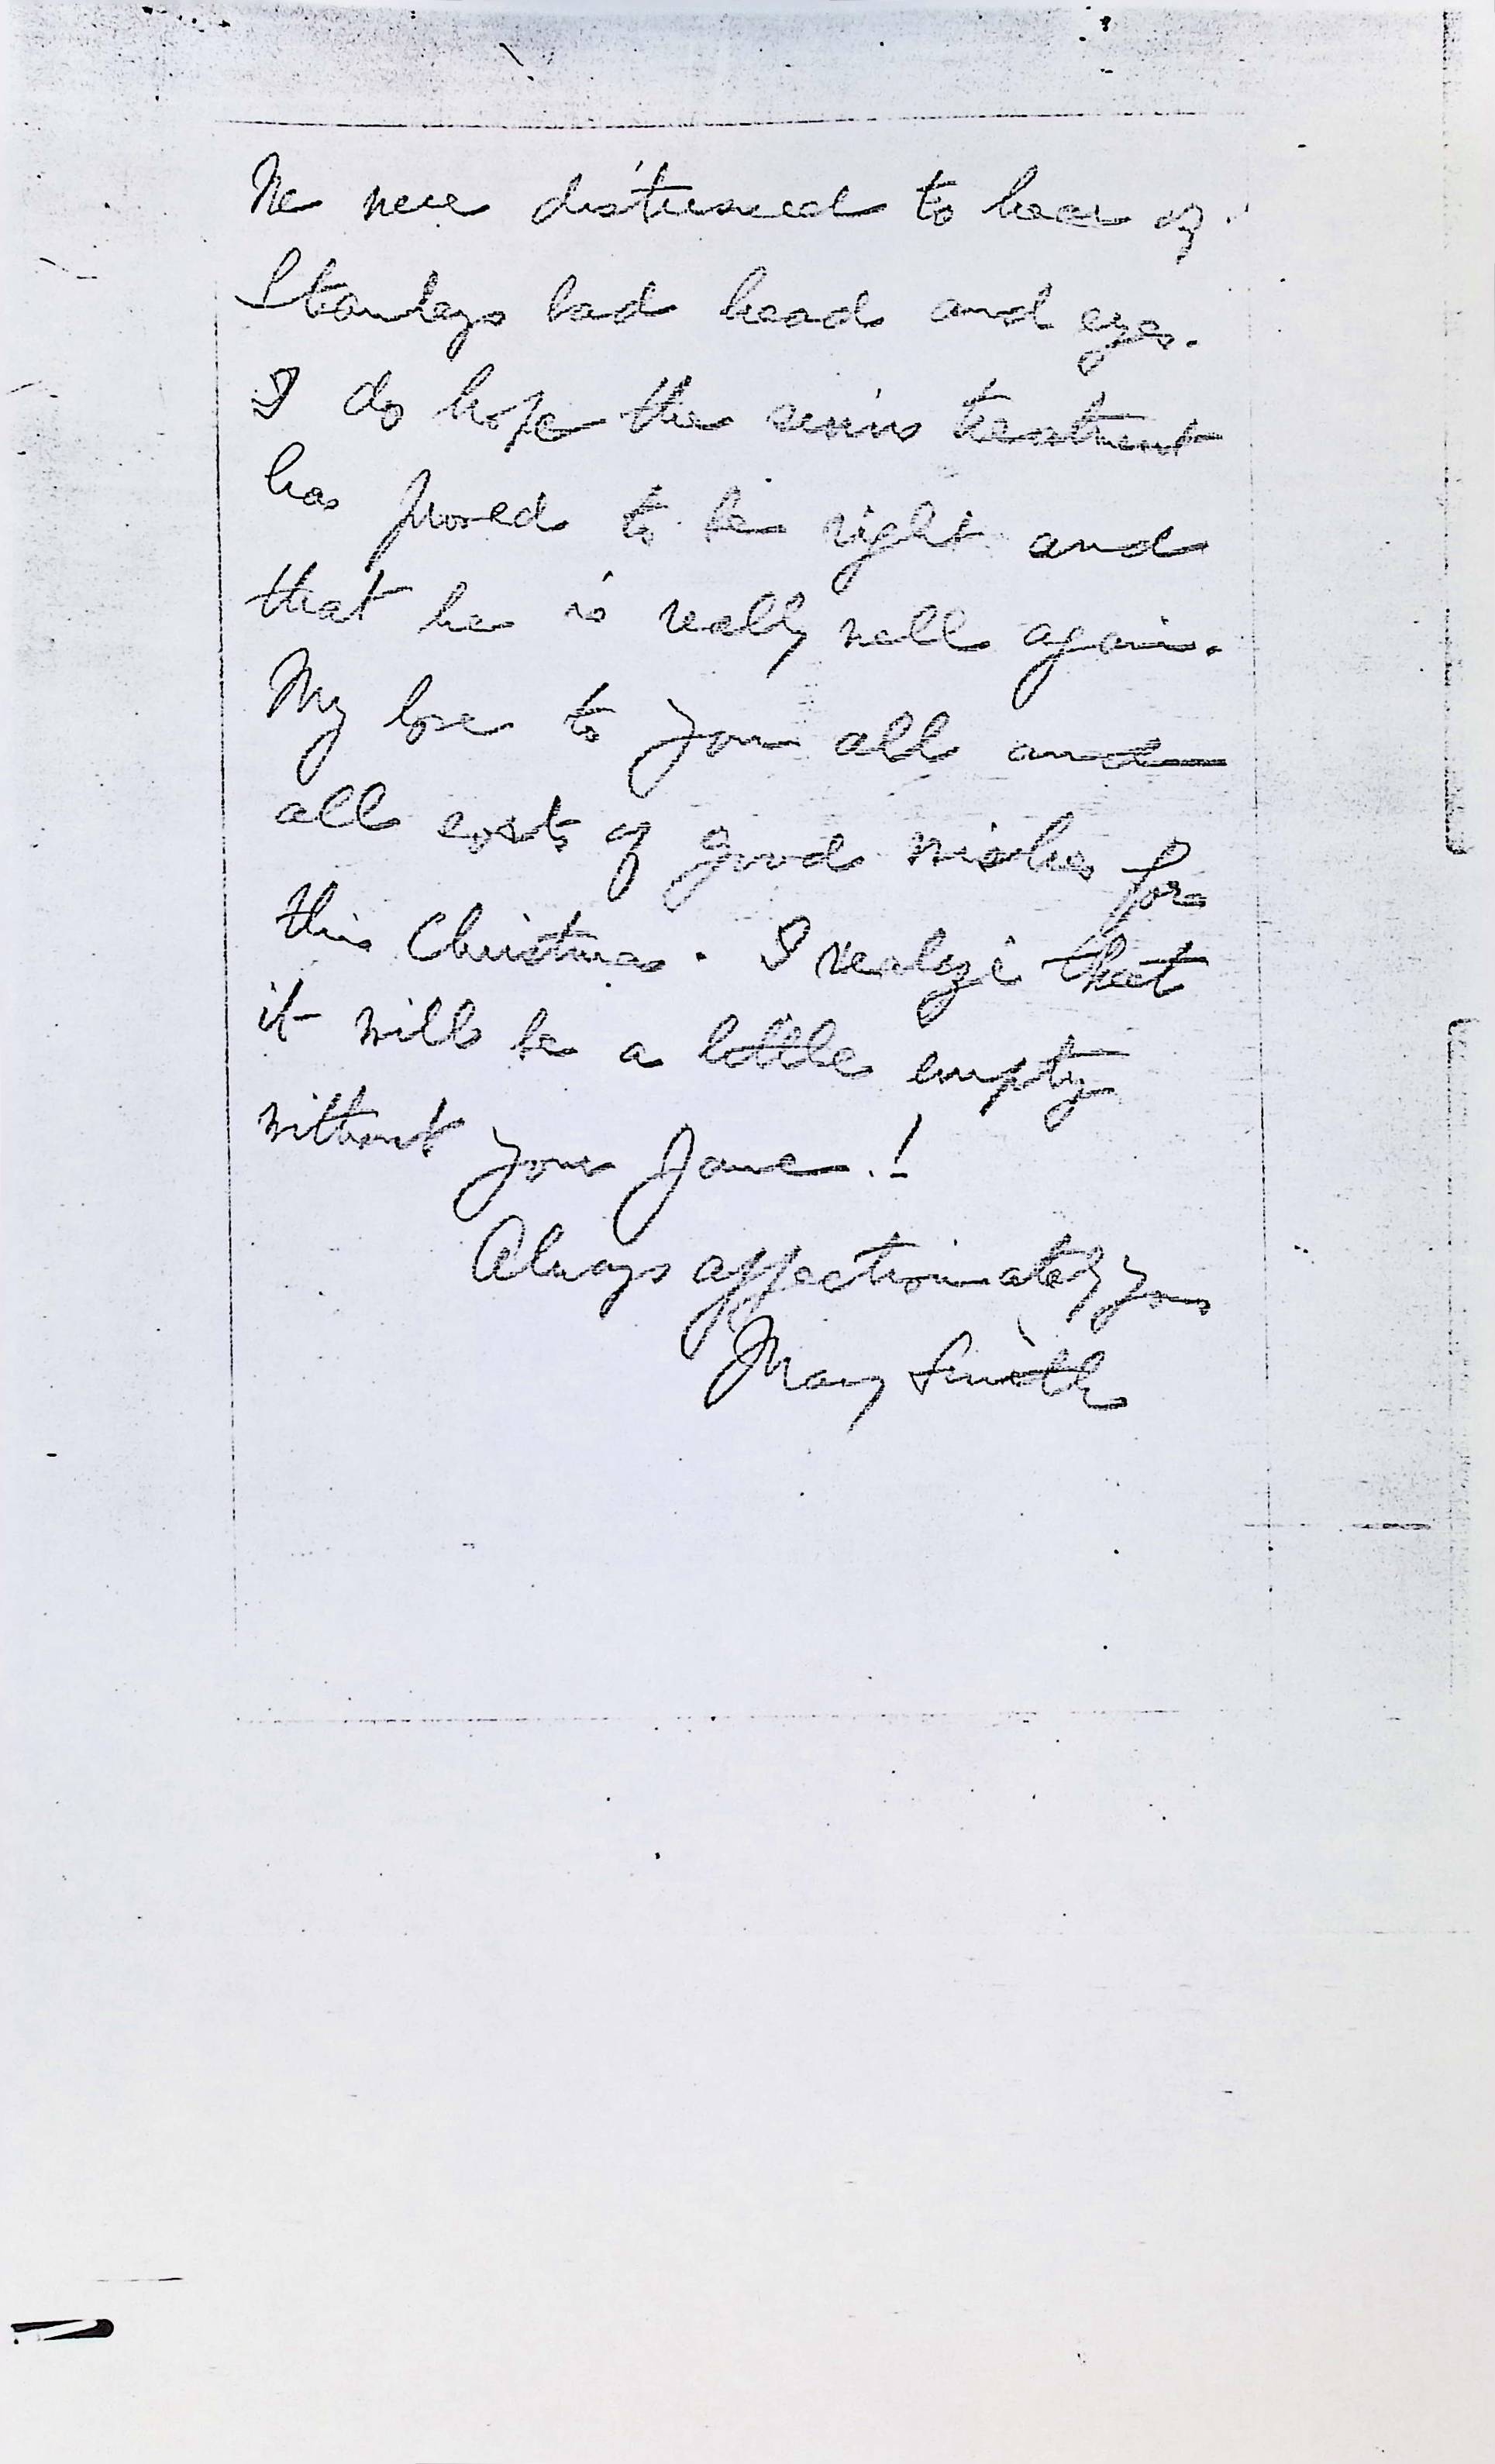 We were distressed to hear of
Stanleys bad head and eyes.
I do hope the sinus treatment
has proved to be right and
that he is really well again.
My love to you all and
all sorts of good wishes for
this Christmas. I realize that
it will be a little empty
without your Jane.!
Always affectionately yours
Mary Smith